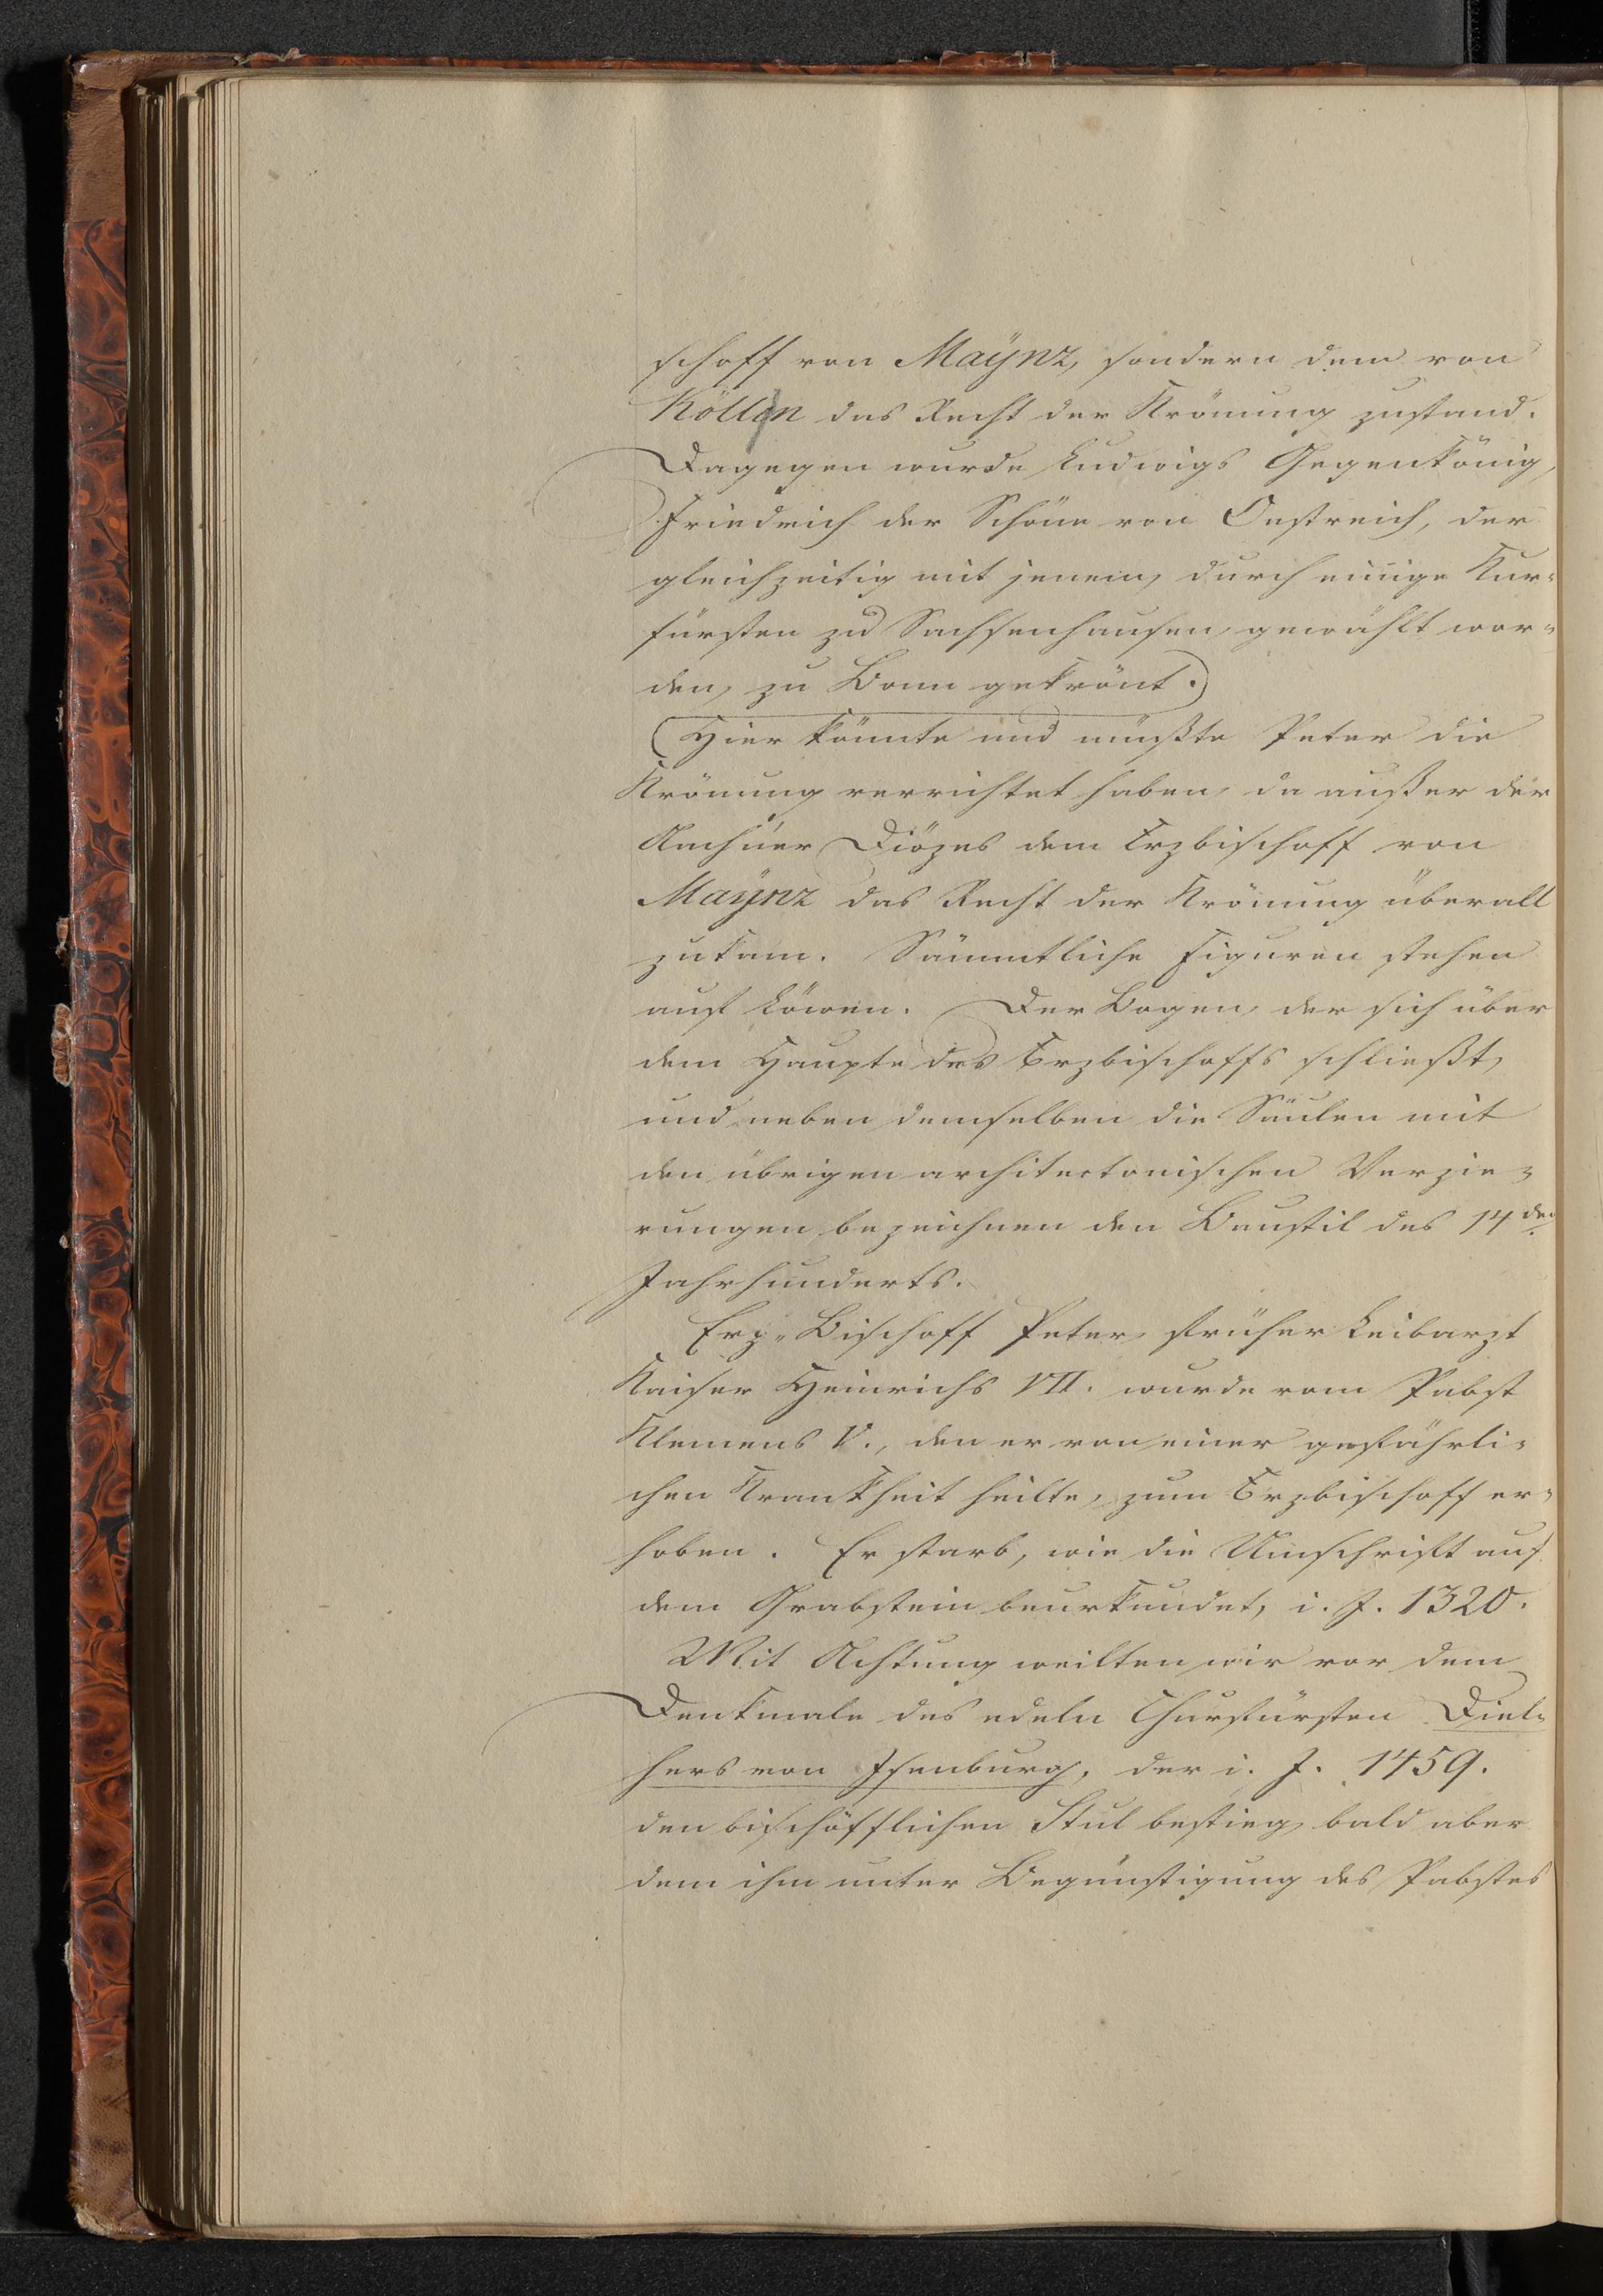 schoff von Maÿnz, sondern dem von
Köllen das Recht der Krönung zustand.
Dagegen wurde Ludwigs Gegenkönig,
Friedrich der Schöne von Oestreich, der
gleichzeitig mit jenem, durch einige Kur-
fürsten zu Sachsenhausen gewählt wor-
den, zu Bonn gekrönt.)
(Hier könnte und müßte Peter die
Krönung verrichtet haben, da außer der
Aachner Diözes dem Erzbischoff von
Maÿnz das Recht der Krönung überall
zukam. Sämmtliche Figuren stehen
auf Löwen. Der Bogen, der sich über
dem Haupte des Erzbischoffs schließt,
und neben demselben die Säulen mit
den übrigen architectonischen Verzie-
rungen bezeichnen den Baustil des 14ten
Jahrhunderts.
Erz-Bischoff Peter, früher Leibarzt
Kaiser Heinrichs VII. wurde vom Pabst
Klemens V., den er von einer gefährli-
chen Krankheit heilte, zum Erzbischoff er-
hoben. Er starb, wie die Umschrift auf
dem Grabstein beurkundet, i. J. 1320.
Mit Achtung weilten wir vor dem
Denkmale des edeln Churfürsten Diet-
hers von Isenburg, der i. J. 1459.
den bischöfflichen Stul bestieg, bald aber
dem ihm unter Begünstigung des Pabstes